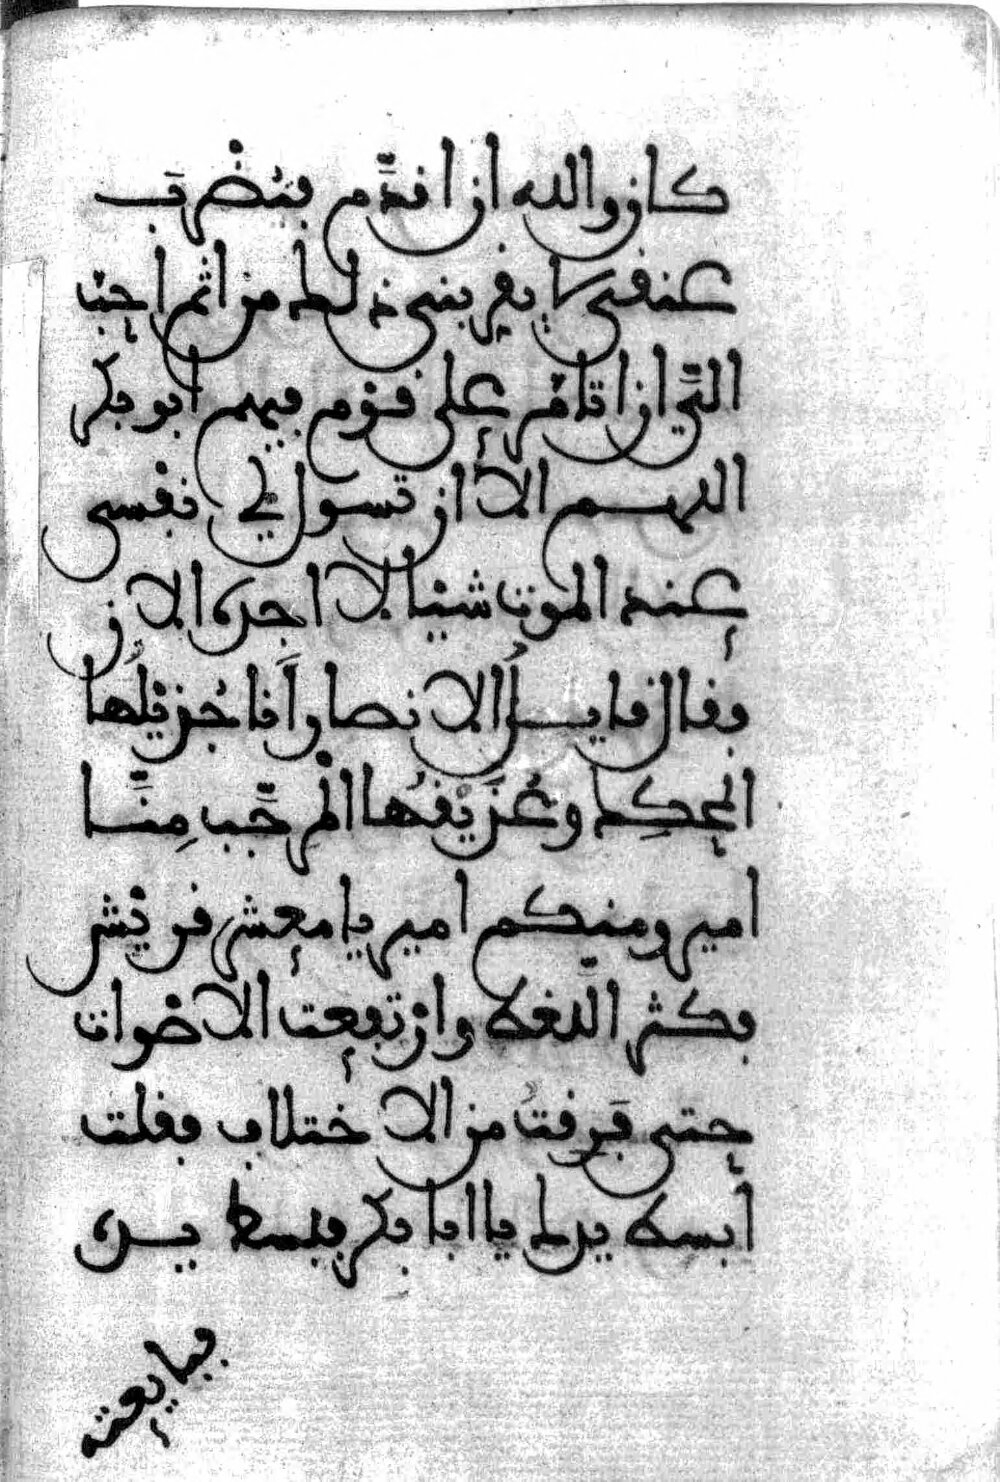 كان والله ان اقدم فتضرب
عنقي لا يقربني ذلك من اثم احب
الي ان اتامر على قوم فيهم ابو بكر
اللهم الا ان تسول لي نفسي
عند الموت شيئا لا اجده الان
فقال قايل الانصار أنا جذيلها
المحكك وعذيقها المرجب منا
امير ومنكم امير يا معشر قريش
فكثر اللغط وارتفعت الاصوات
حتى فرقت من الاختلاف فقلت
أبسط يدك يا ابا بكر فبسط يده
فبايعته